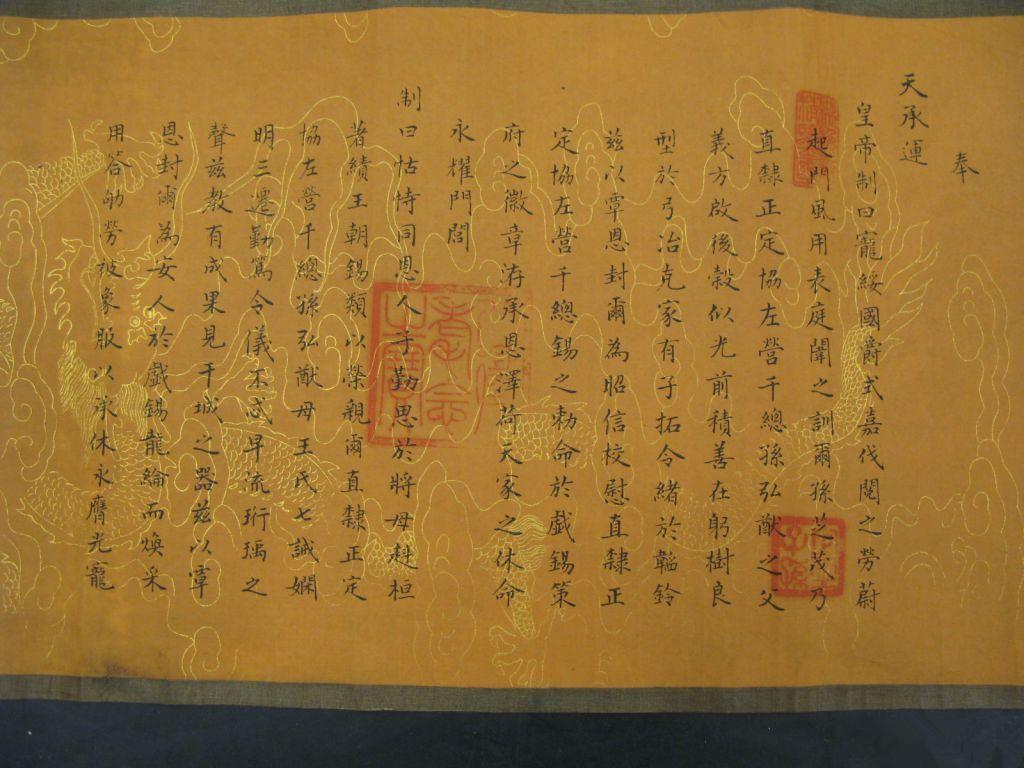 奉
天承運
皇帝制曰寵綏國爵式嘉伐閱之勞蔚
起門風用表庭闈之訓爾孫芝茂乃
直隸正定協左營千總孫弘猷之父
義方啟後穀似光前積善在躬樹良
型於弓冶克家有子拓令緒於韜鈐
茲以覃恩封爾為昭信校慰直隸正
定協左營千總錫之勅命於戲錫策
府之徽章洊承恩澤荷天家之休命
永耀門閭
制曰怙恃同恩人子勤思於將母赳桓
著績王朝錫類以榮親爾直隸正定
協左營千總孫弘猷母王氏七誡嫻
明三遷勤篤令儀不忒早流珩瑀之
聲茲教有成果見干城之器茲以覃
恩封爾為安人於戲錫龍綸而煥采
用答劬勞被象服以承休永膺光寵